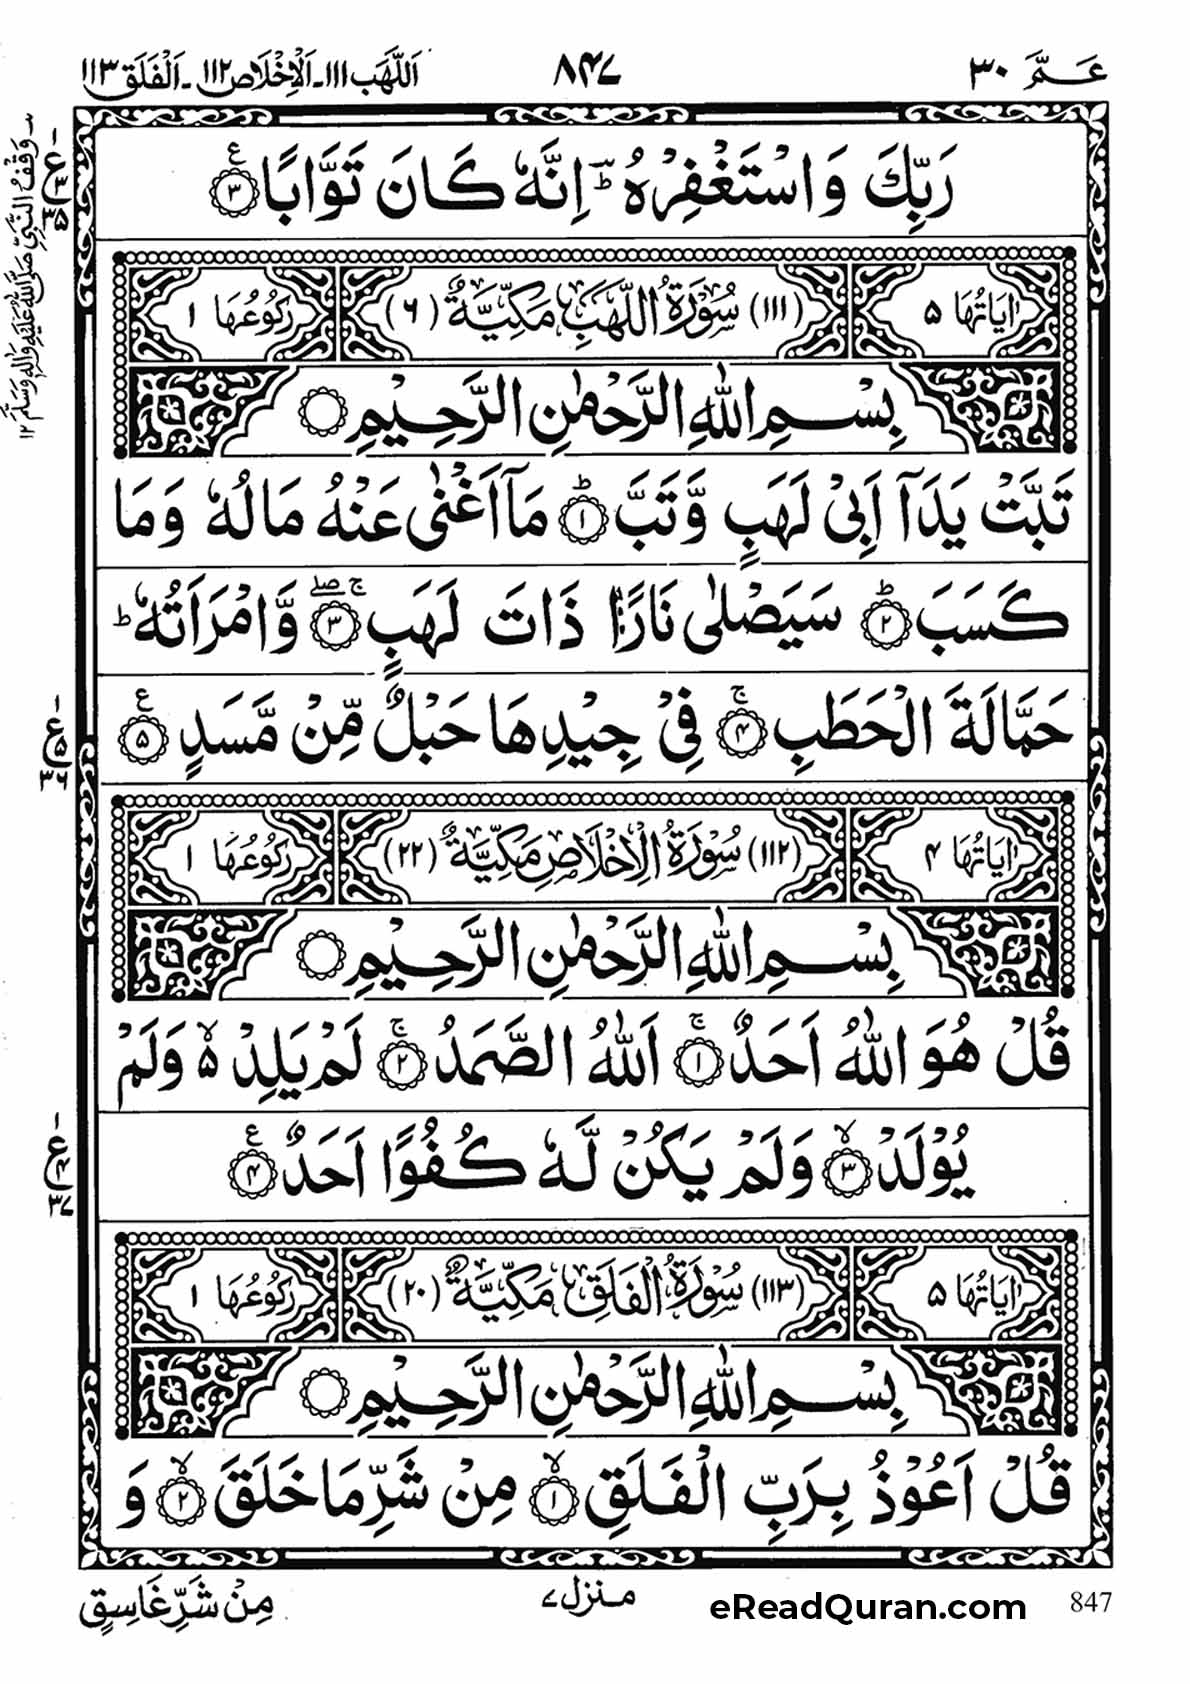 عَـمَّ ٣٠
٨٤٧
اَللَّهَب ١١١ـ اَلْاِخْلَاص ١١٢ـ اَلْفَلَق ١١٣
رَبِّكَ وَاسْتَغْفِرْهُ ؔؕ اِنَّهٗ كَانَ تَوَّابًا ۝٣ ع
اٰيَاتُهَا ٥ (١١١) سُوْرَةُ اللَّهَبِ مَكِّيَّةٌ (٦) رُكُوْعُهَا ١
بِسْمِ اللّٰهِ الرَّحْمٰنِ الرَّحِيْمِ ۝
تَبَّتْ يَدَاۤ اَبِىْ لَهَبٍ وَّتَبَّ ۝١ؕ مَاۤ اَغْنٰى عَنْهُ مَالُهٗ وَمَا
كَسَبَ ۝٢ؕ سَيَصْلٰى نَارًا ذَاتَ لَهَبٍ ۝٣ۖۚ وَّامْرَاَتُهٗ ؕ
حَمَّالَةَ الْحَطَبِ ۝٤ۚ فِىْ جِيْدِهَا حَبْلٌ مِّنْ مَّسَدٍ ۝٥ ع
اٰيَاتُهَا ٤ (١١٢) سُوْرَةُ الْاِخْلَاصِ مَكِّيَّةٌ (٢٢) رُكُوْعُهَا ١
بِسْمِ اللّٰهِ الرَّحْمٰنِ الرَّحِيْمِ ۝
قُلْ هُوَ اللّٰهُ اَحَدٌ ۝١ۚ اَللّٰهُ الصَّمَدُ ۝٢ۚ لَمْ يَلِدْ ۙ۬ وَلَمْ
يُوْلَدْ ۝٣ۙ وَلَمْ يَكُنْ لَّهٗ كُفُوًا اَحَدٌ ۝٤ ع
اٰيَاتُهَا ٥ (١١٣) سُوْرَةُ الْفَلَقِ مَكِّيَّةٌ (٢٠) رُكُوْعُهَا ١
بِسْمِ اللّٰهِ الرَّحْمٰنِ الرَّحِيْمِ ۝
قُلْ اَعُوْذُ بِرَبِّ الْفَلَقِ ۝١ۙ مِنْ شَرِّ مَا خَلَقَ ۝٢ۙ وَ
مِنْ شَرِّ غَاسِقٍ
منزل ٧
eReadQuran.com
847
وَقْفُ النَّبِىِّ صَلَّى اللّٰهُ عَلَيْهِ وَاٰلِهٖ وَسَلَّمَ ١٢
ع ٣ ٣٥
ع ٥ ٣٦
ع ٤ ٣٧